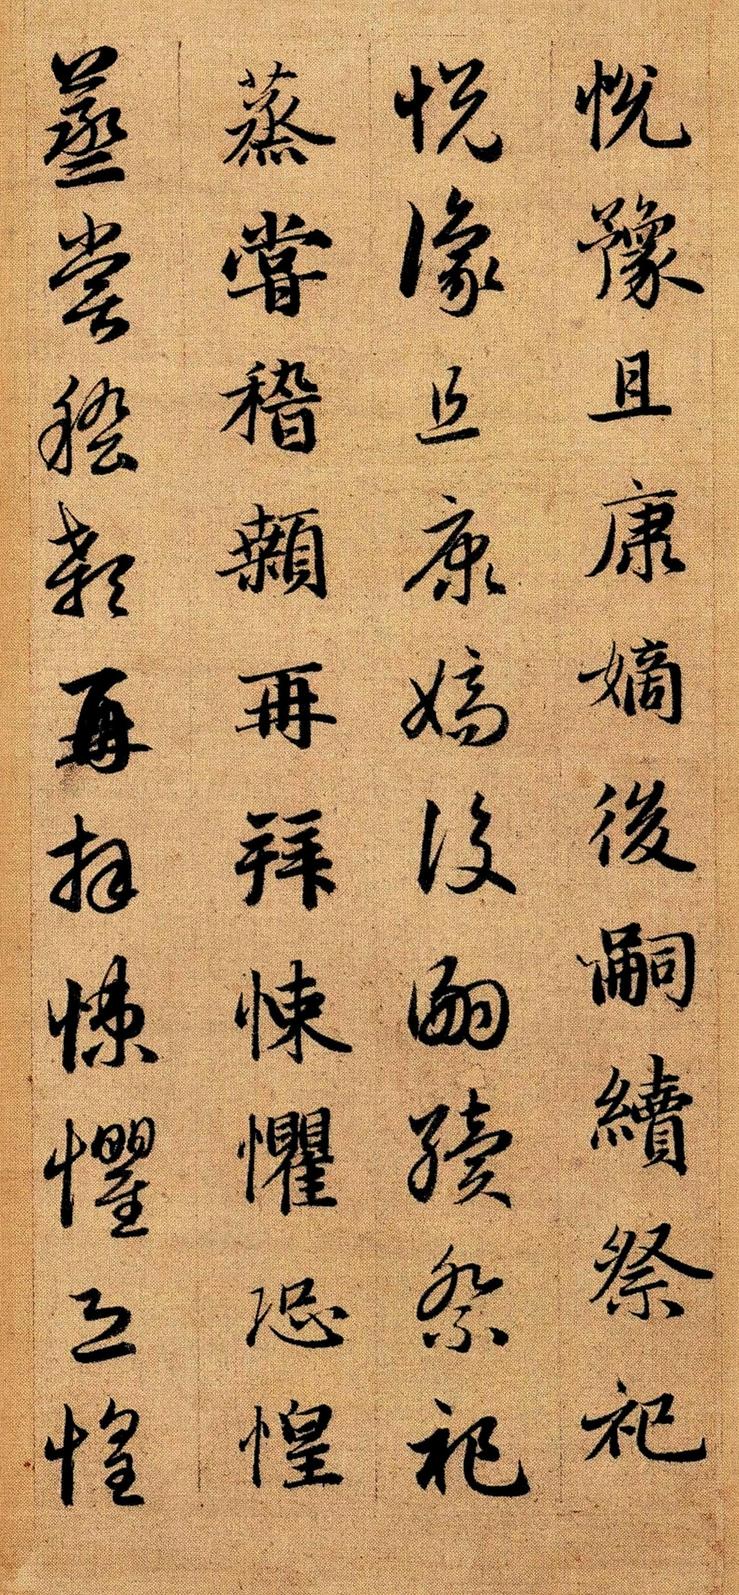 悅豫且康嫡後嗣續祭祀
悅豫且康嫡後嗣續祭祀
蒸嘗稽顙再拜悚懼恐惶
蒸嘗稽顙再拜悚懼恐惶